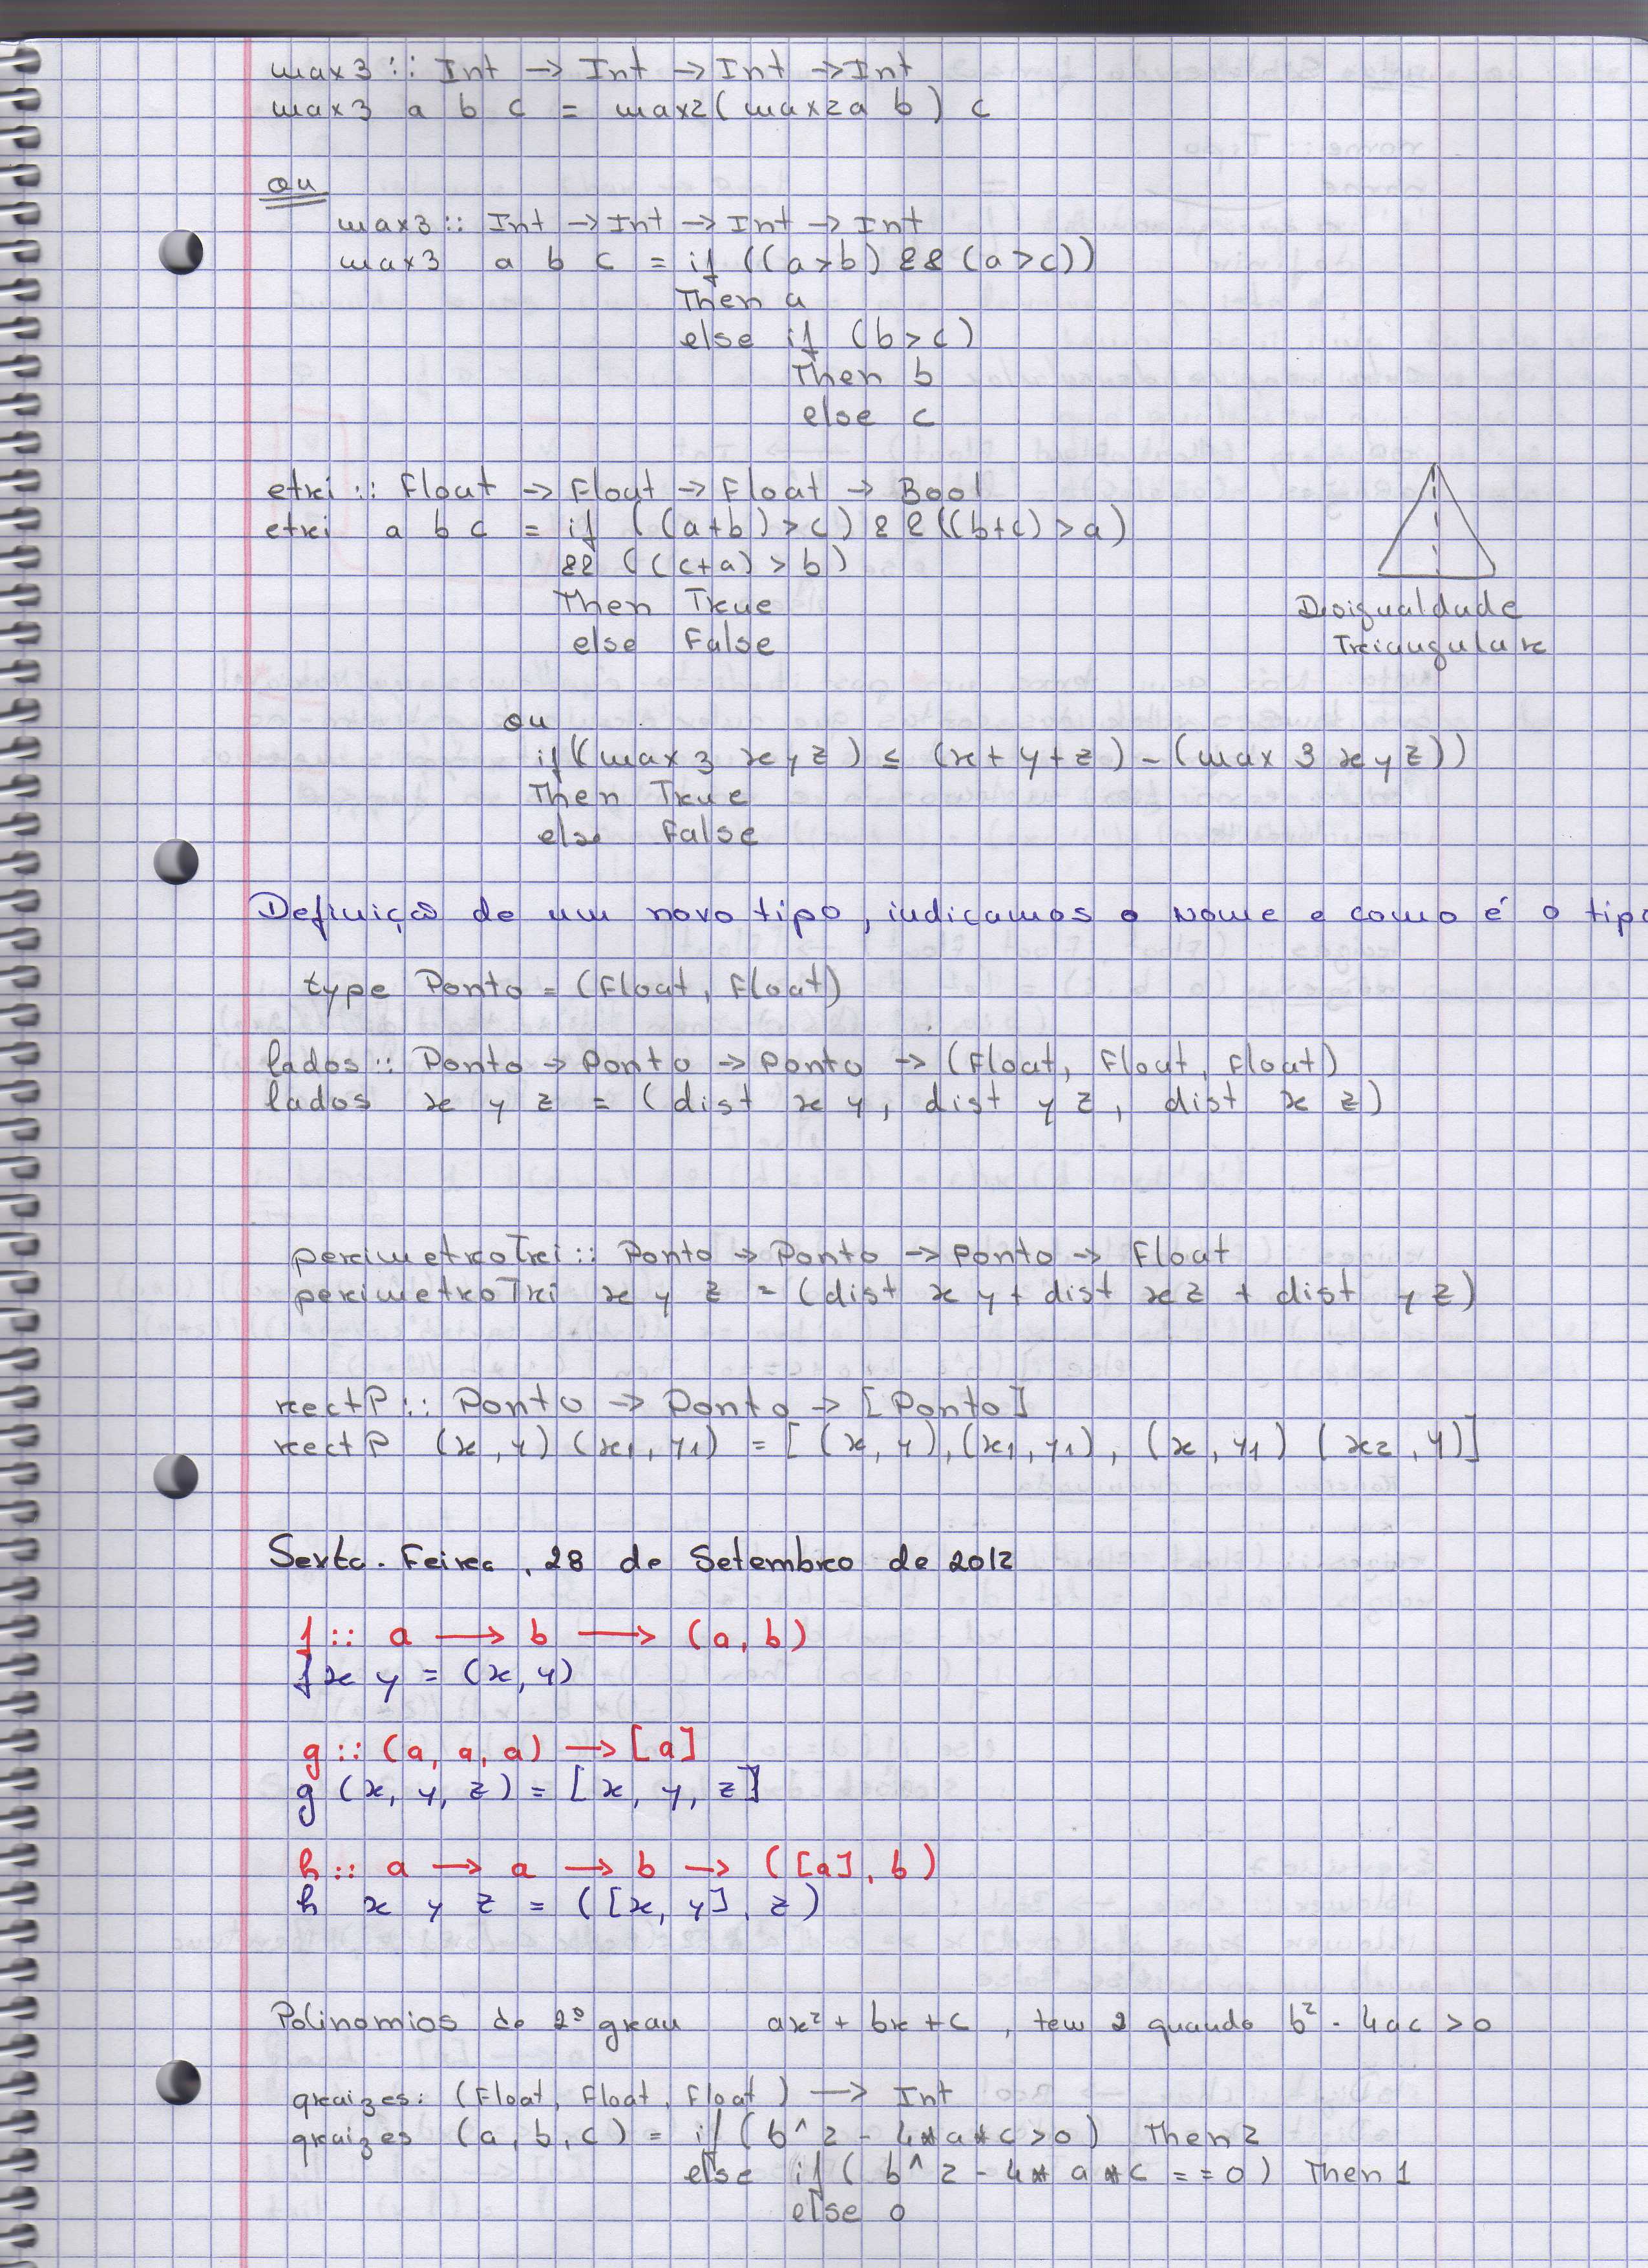 max3 :: Int -> Int -> Int -> Int
max3 a b c = max2 ( max2 a b ) c
ou
max3 :: Int -> Int -> Int -> Int
max3 a b c = if ((a>b) && (a>c))
Then a
else if (b>c)
Then b
else c
etri :: Float -> Float -> Float -> Bool
etri a b c = if ((a+b) > c) && ((b+c) > a)
&& ((c+a) > b)
Then True
else False
Desigualdade
Triangular
ou
if((max 3 x y z) ≤ (x + y + z) - (max 3 x y z))
Then True
else False
Definição de um novo tipo, indicamos o nome e como é o tipo
type Ponto = (Float, Float)
lados :: Ponto -> Ponto -> Ponto -> (Float, Float, Float)
lados x y z = (dist x y, dist y z, dist x z)
perimetroTri :: Ponto -> Ponto -> Ponto -> Float
perimetroTri x y z = (dist x y + dist x z + dist y z)
rectP :: Ponto -> Ponto -> [Ponto]
rectP (x, y) (x1, y1) = [(x, y), (x1, y1), (x, y1) (x2, y)]
Sexta-Feira, 28 de Setembro de 2012
f :: a -> b -> (a, b)
f x y = (x, y)
g :: (a, a, a) -> [a]
g (x, y, z) = [x, y, z]
h :: a -> a -> b -> ([a], b)
h x y z = ([x, y], z)
Polinomios do 2º grau ax² + bx + c, tem 2 quando b² - 4ac > 0
qraizes: (Float, Float, Float) -> Int
qraizes (a, b, c) = if (b^2 - 4*a*c > 0) Then 2
else if (b^2 - 4*a*c == 0) Then 1
else 0